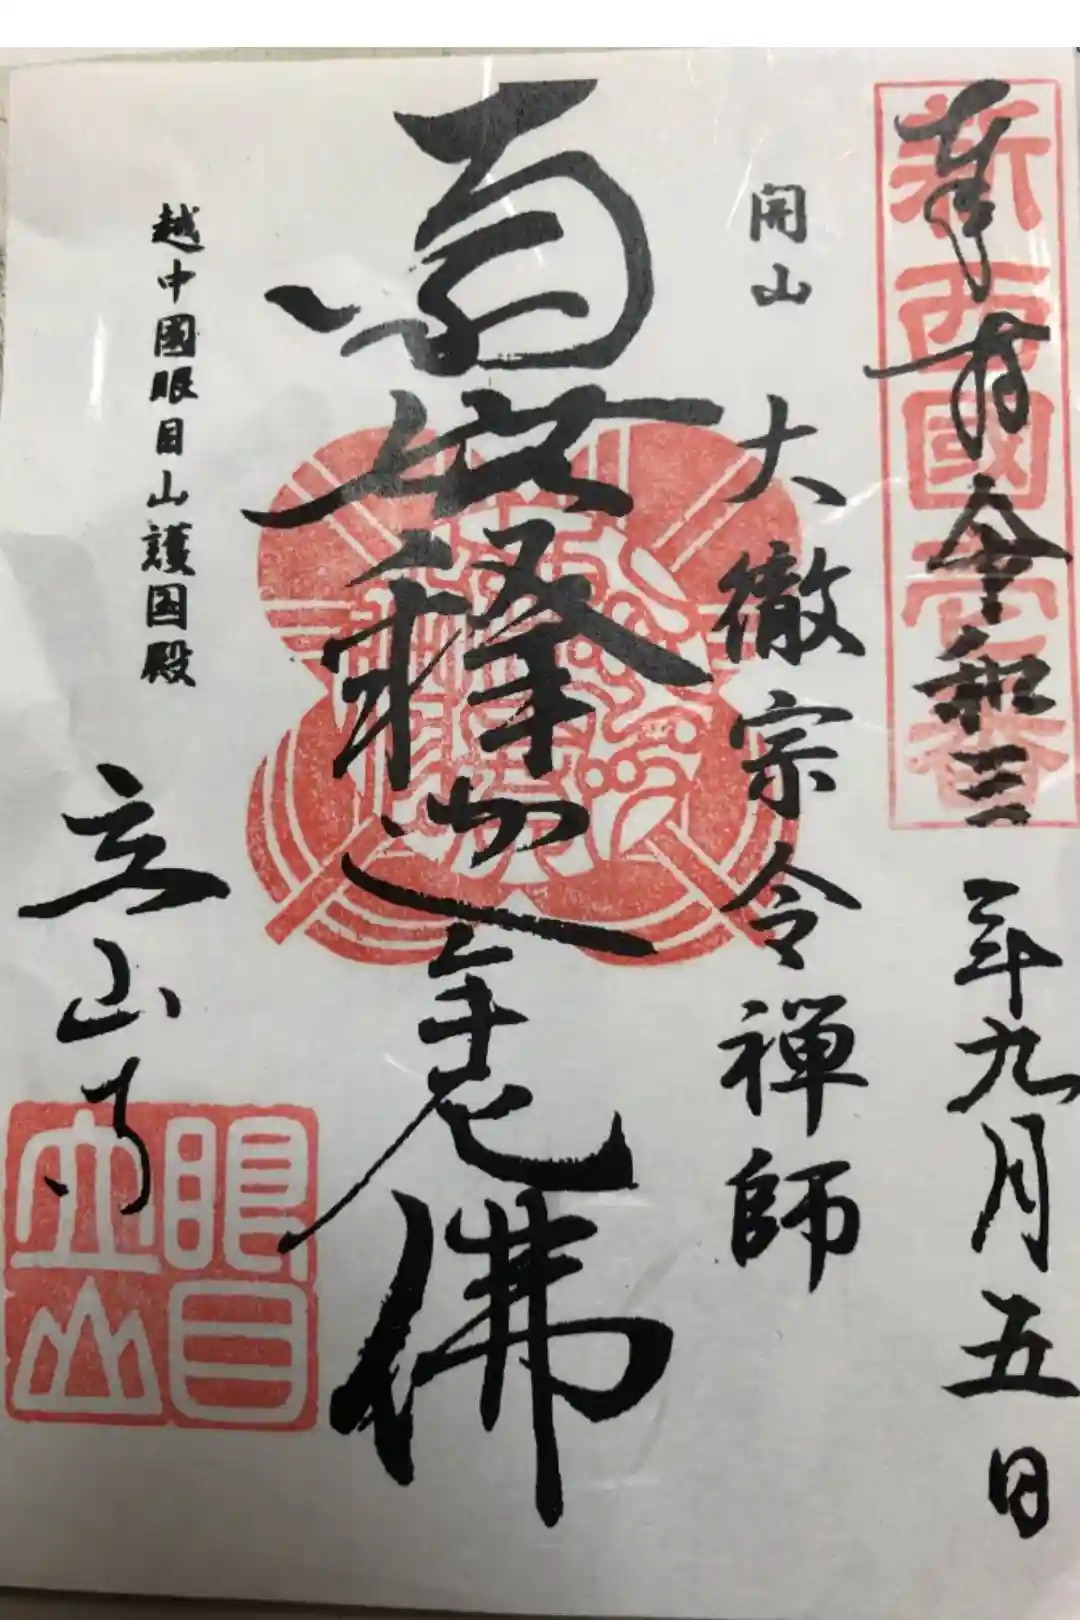 奉拝 令和三年九月五日
新西國壱番
開山 大徹宗令禅師
南無釋迦牟尼佛
越中國眼目山護国殿
立山寺
眼目
立山